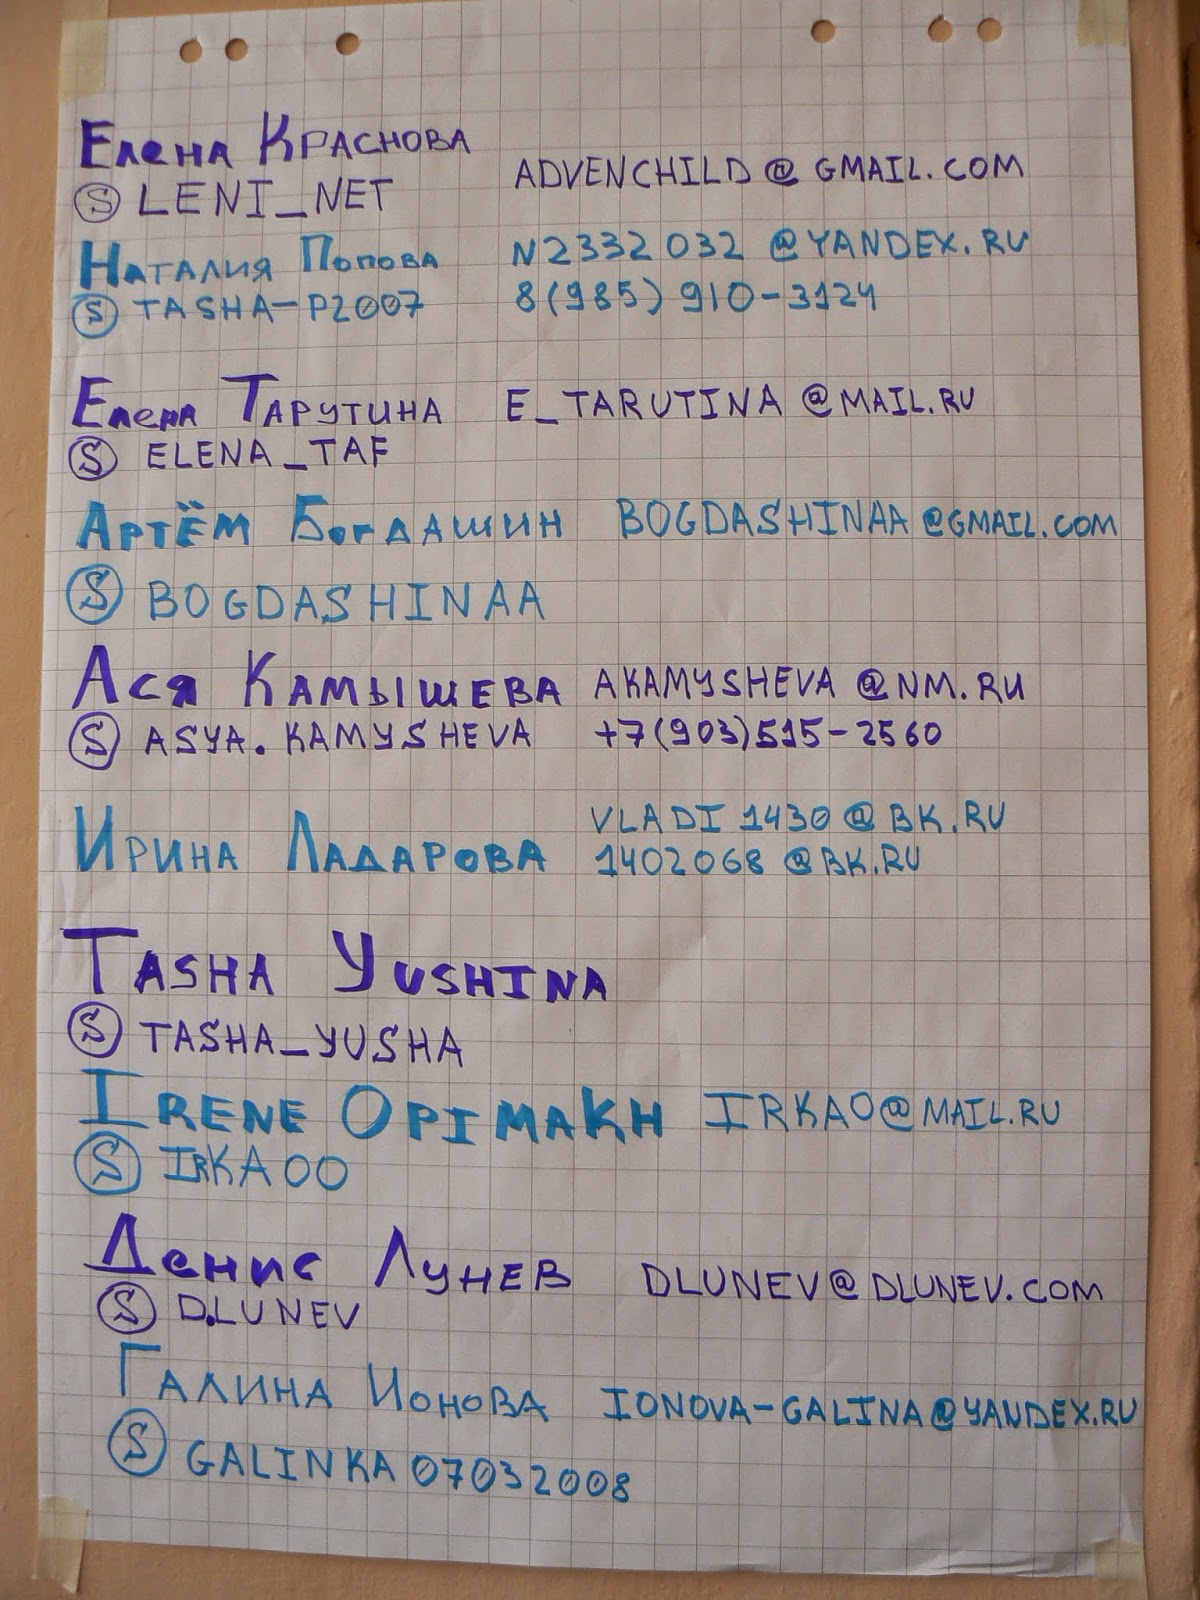 Елена Краснова
ADVENCHILD@GMAIL.COM
Ⓢ LENI_NET
Наталия Попова N2332032@YANDEX.RU
Ⓢ TASHA-P2007 8(985) 910-3124
Елена Тарутина E_TARUTINA@MAIL.RU
Ⓢ ELENA_TAF
Артём Богдашин BOGDASHINAA@GMAIL.COM
Ⓢ BOGDASHINAA
Ася Камышева AKAMYSHEVA@NM.RU
Ⓢ ASYA.KAMYSHEVA +7(903)515-2560
Ирина Ладарова VLADI1430@BK.RU
1402068@BK.RU
TASHA YUSHINA
Ⓢ TASHA_YUSHA
IRENE OPIMAKH IRKAO@MAIL.RU
Ⓢ IRKAOO
Денис Лунев DLUNEV@DLUNEV.COM
Ⓢ D.LUNEV
Галина Ионова IONOVA-GALINA@YANDEX.RU
Ⓢ GALINKA07032008